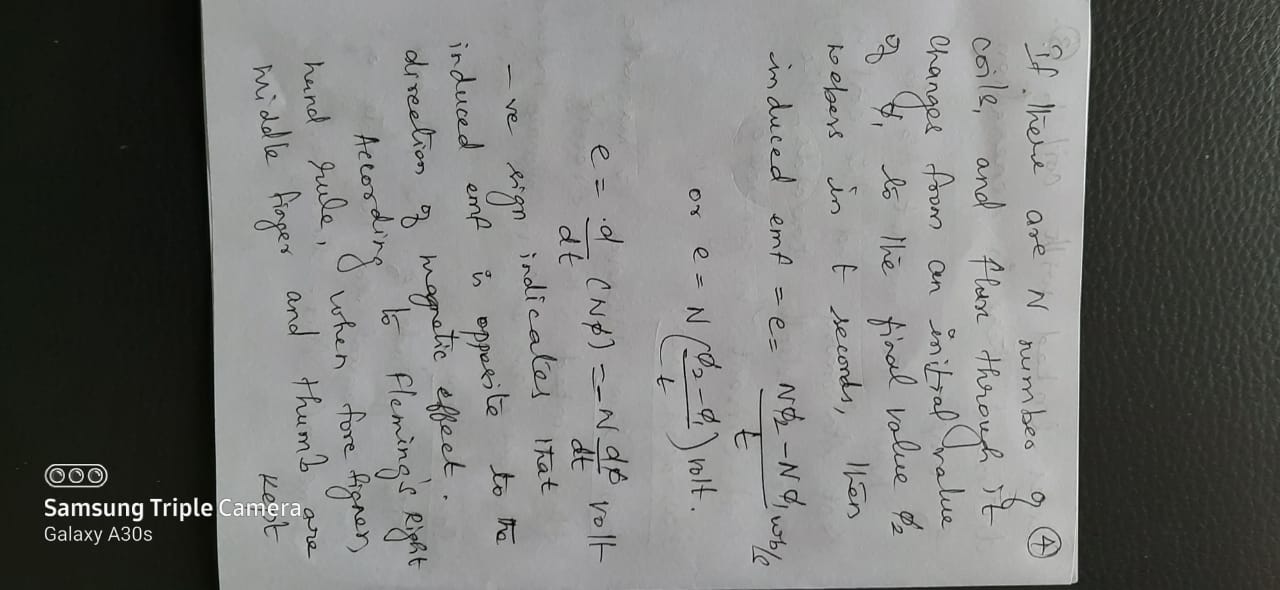 ④
if there are N numbes of
coils, and flux through it
changes from an initial value
of φ₁ to the final value φ₂
webers in t seconds, then
induced emf = e = (Nφ₂ - Nφ₁)/t wb/s
or e = N((φ₂ - φ₁)/t) volt.
e = d/dt (Nφ) = -N dφ/dt volt
- ve sign indicates that
induced emf is opposite to the
direction of magnetic effect.
According to Fleming's Right
hand rule, when fore figner,
middle finger and thumb are
kept
Samsung Triple Camera
Galaxy A30s